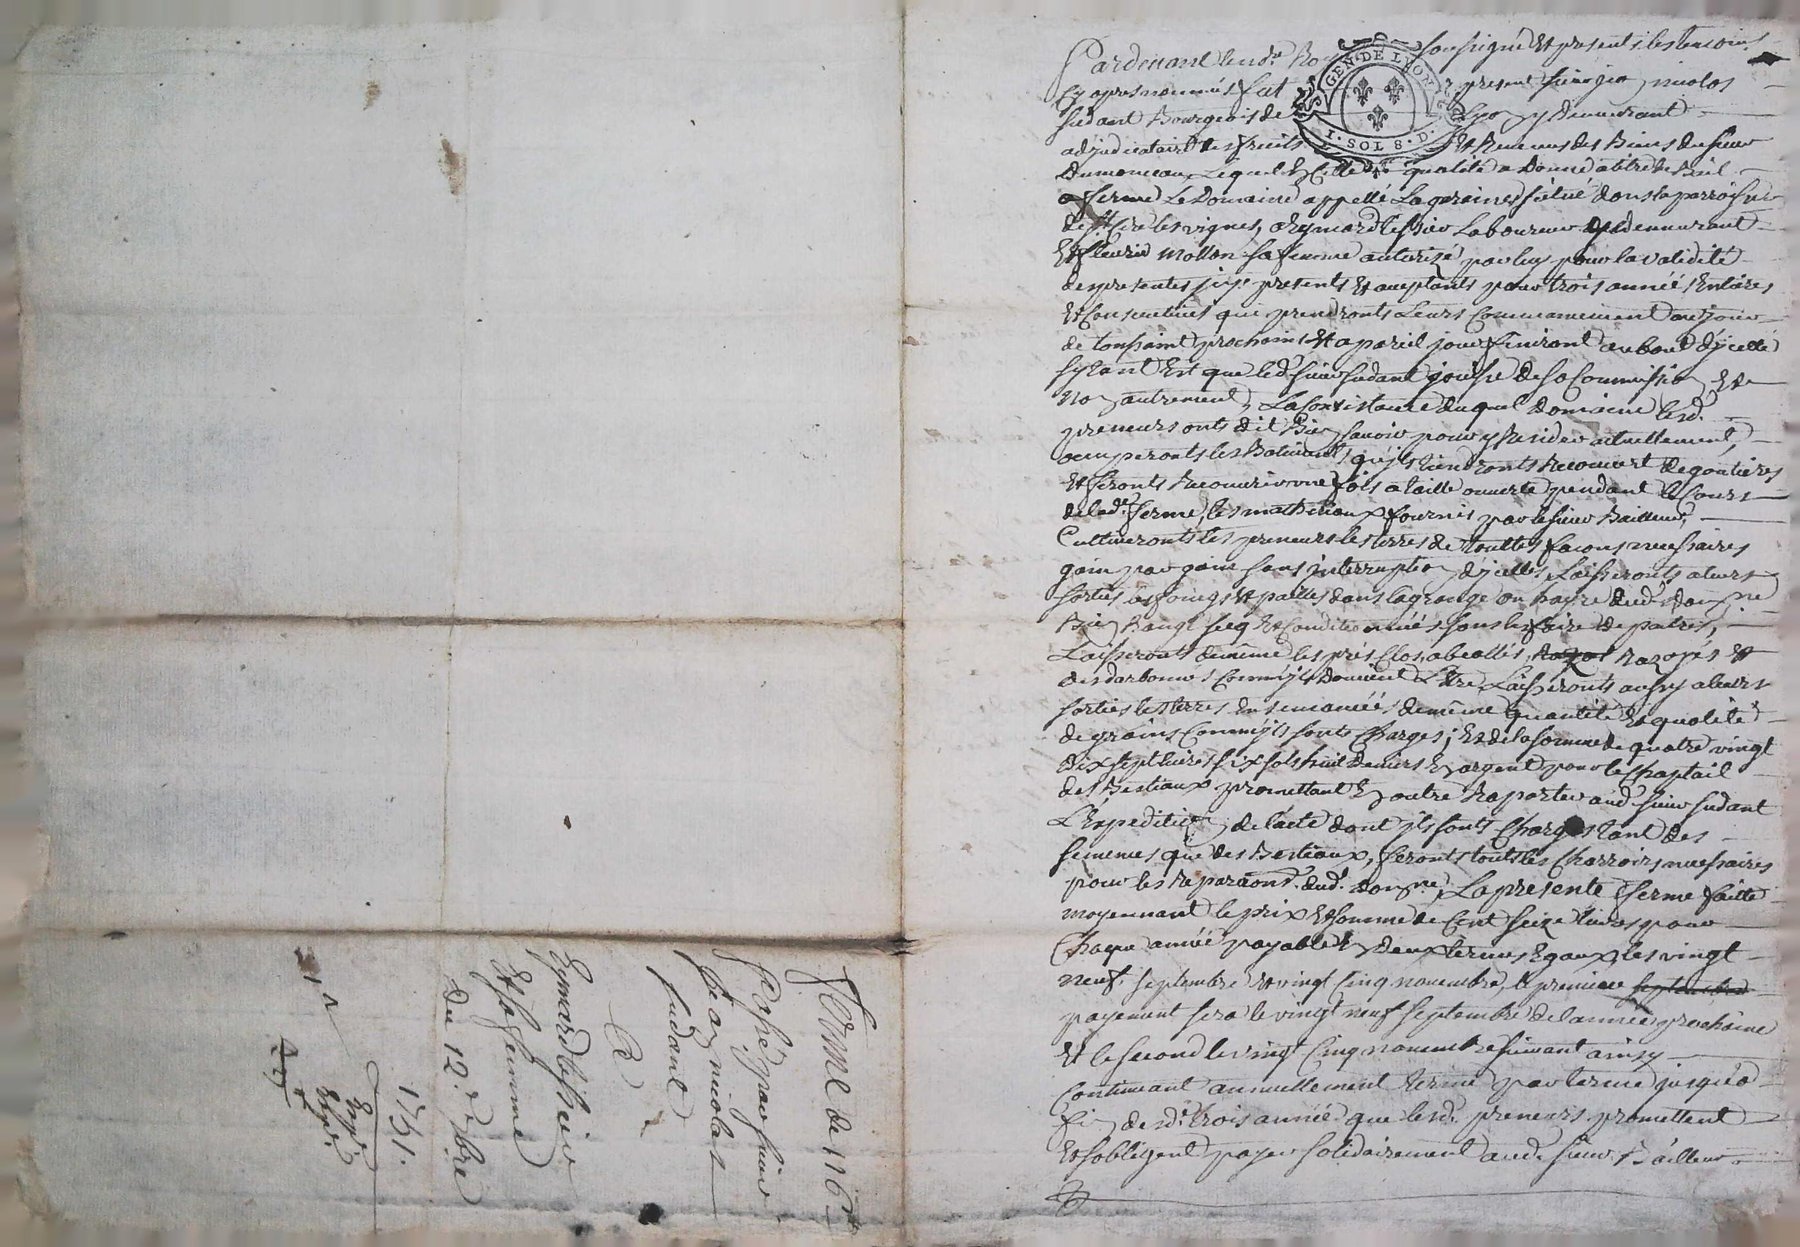 GEN. DE LYON
I. SOL 8. D.
Pardevant le nore Ro soussigné Et presents les temoins
Cy apres nommés fut present sieur jean nicolas
sudant Bourgeois de y Demeurant
adjudicataire des fruits Et Revenus des Biens du sieur
Dumonceaux Lequel En Cette qualité a Donné a titre de Bail
a ferme Le Domaine appellé La garaine situé dans la parroisse
de St Cire les vignes, a Eymard Laboureur y demeurant
Et fleurie mollon sa femme autorisé par luy pour la validité
des presentes jcy presents Et acceptants pour trois année Entieres
Et Consecutives que prendronts Leurs Commancement au jour
de toussaint prochains Et a pareil jour finiront au bout d'jcelle
sytant Est que led. sieur sudant jouisse de sa Commission Et
non autrement, La Consistance duquel Domaine lesd.
preneurs onts dit Bien savoir pour y Resider actuellement,
occuperonts les Batiments qu'jls tiendronts Recouvert de goutieres
Et feronts Recouvrir une fois a taille ouverte pendant le Cours
de lade ferme, les matheriaux fournis par le sieur Bailleur,
Cultiveronts les preneurs les terres de touttes facons necessaires
gain par gain sans jnterruption d'jcelles, Laisseronts a leurs
sorties les foings Et pailles dans la grange ou dud. Domne
Bien Rangé secq Et Conditionnés sans les faire de patres,
Laisseronts de même les prés Clos, abeallés, Razopés Et
desdarbonnés Comme jls Doivent L'Etre, Laisseronts aussy a leurs
sorties les terres Ensemancéés de même quantité Et qualité
de grains Comme jls sonts Charges; Et de la somme de quatre vingt
Dix sept livres six sols huit Deniers En argent pour le Chaptail
des Bestiaux promettant En outre Raporter aud. sieur sudant
L'Expedition de l'acte dont jls sonts Charges tant des
semences que des Bestiaux, feronts touts les Charroirs necessaires
pour les Reparaons. dud. Domne, La presente ferme faitte
moyennant le prix Et somme de Cent seize livres pour
Chaque année payable En deux termes Egaux, les vingt
neuf septembre Et vingt Cinq novembre, le premiere septembre
payement sera le vingt neuf septembre de l'année prochaine
Et le second le vingt Cinq novembre suivant ainsy
Continuant annuellement terme par terme jusqu'a
fin desd. trois année que lesd. preneurs promettent
Et s'obligent payer solidairement aud. sieur Bailleur
ferme de 116 lt
passé par sieur
jean nicolas
sudant
a
Eymard
Et sa femme
Du 12. 7bre
1751.